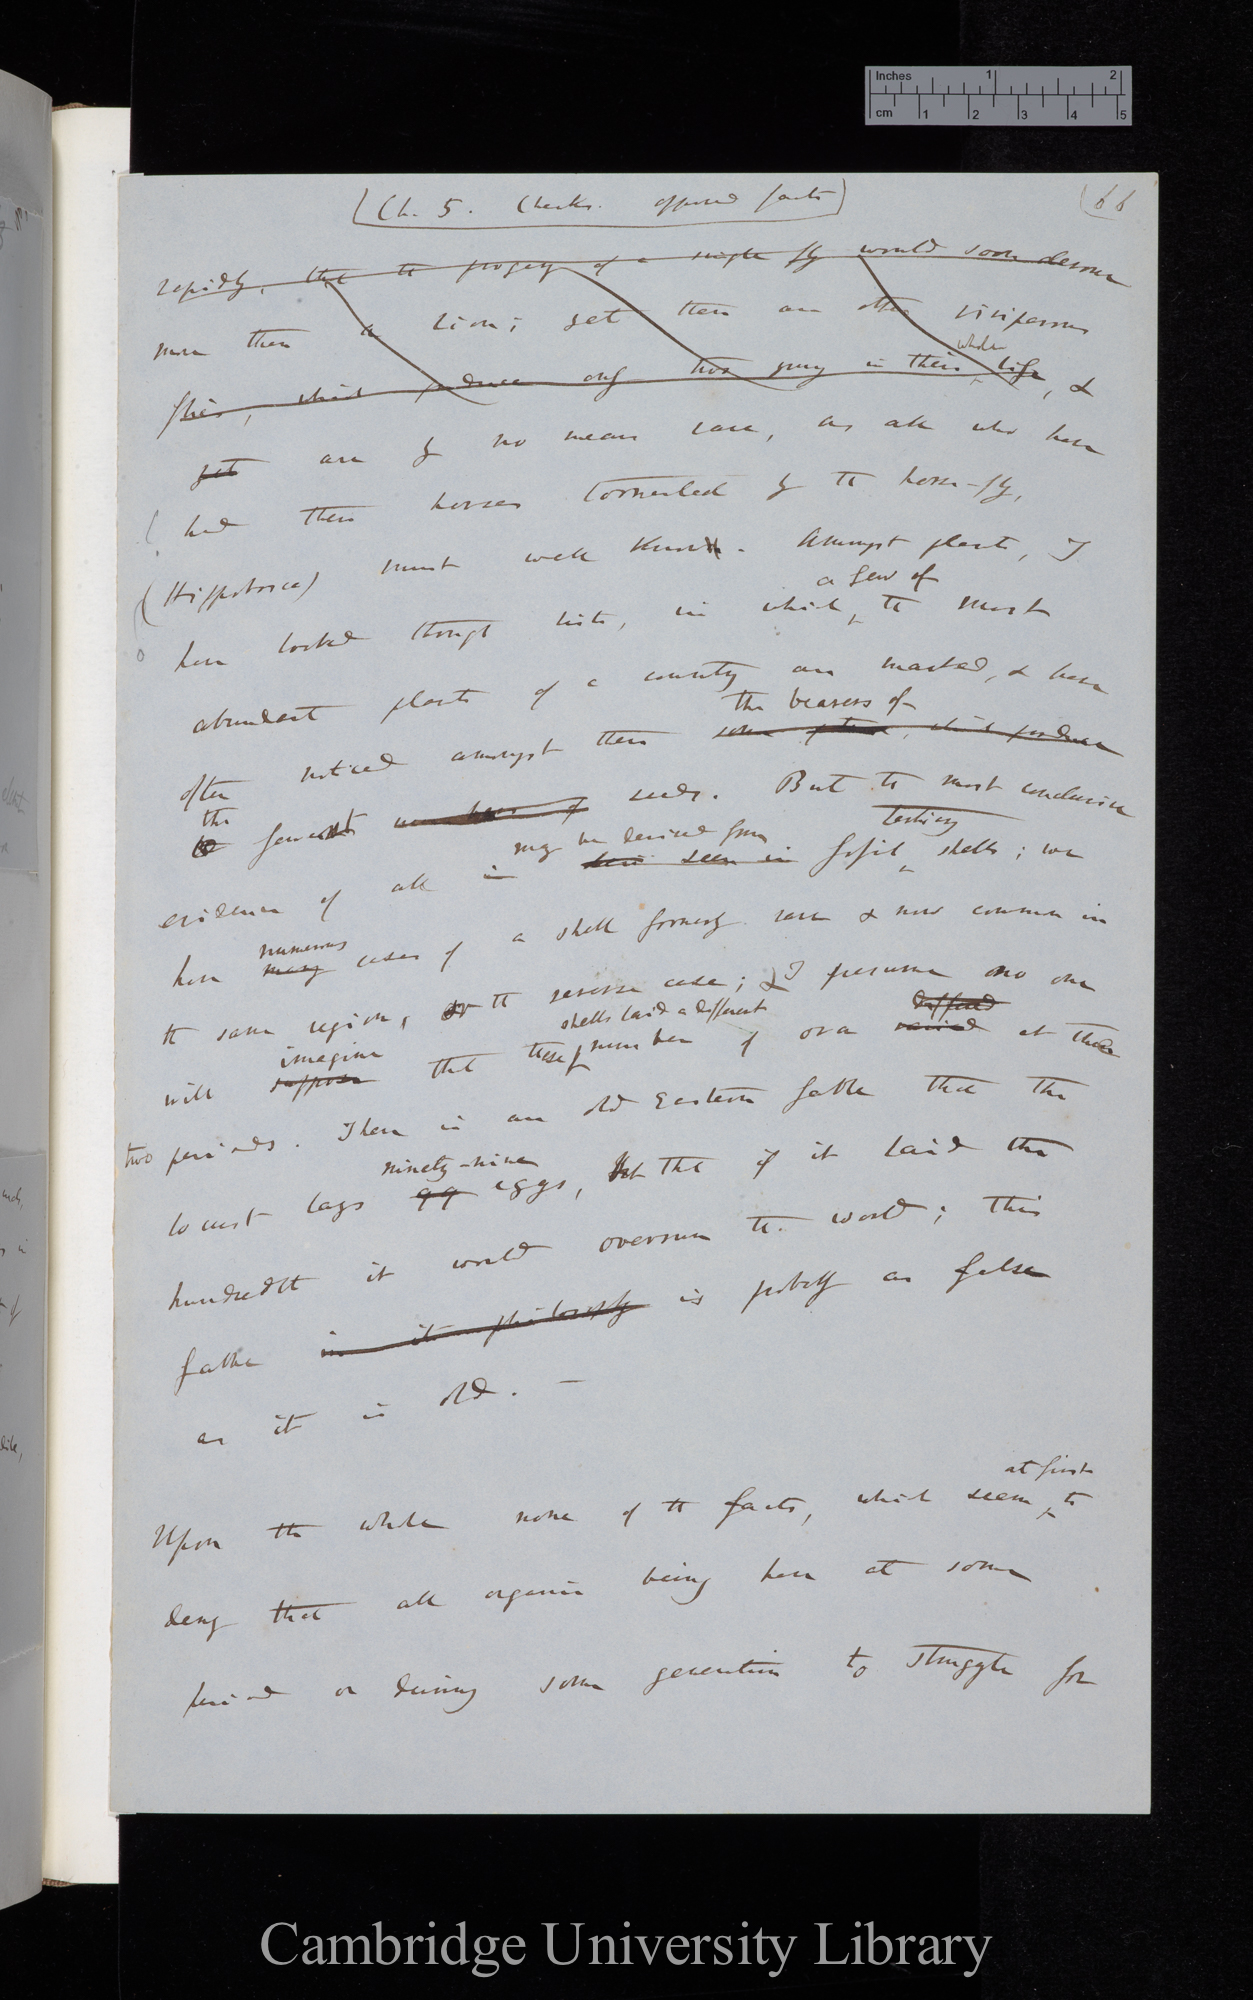 Inches 1 2
cm 1 2 3 4 5
(Ch. 5. Checks. opposed facts)
(66
rapidly, that the progeny of a single fly would soon devour
more than a Lion; yet there are other viviparous
whole
flies, which produce only two young in their life, &
yet are by no means rare, as all who have
had their horses tormented by the horse-fly,
(Hippobosca) must well know. Amongst plants, I
a few of
have looked through lists, in which the most
abundant plants of a county are marked, & have
the bearers of
often noticed amongst them some plants, which produce
the
fewest number of seeds. But the most conclusive
may be derived from tertiary
evidence of all is seen in fossil shells; we
numerous
have many cases of a shell formerly rare & now common in
the same region, or the reverse case; & I presume no one
imagine shells laid a different differed
will suppose that these number of ova varied at these
two periods. There is an old Eastern fable that the
ninety-nine
locust lays 99 eggs, but that if it laid the
hundredth it would overrun the world; this
fable in its philosophy is probably as false
as it is old. —
at first
Upon the whole none of the facts, which seem to
deny that all organic being have at some
period or during some generation to struggle for
Cambridge University Library